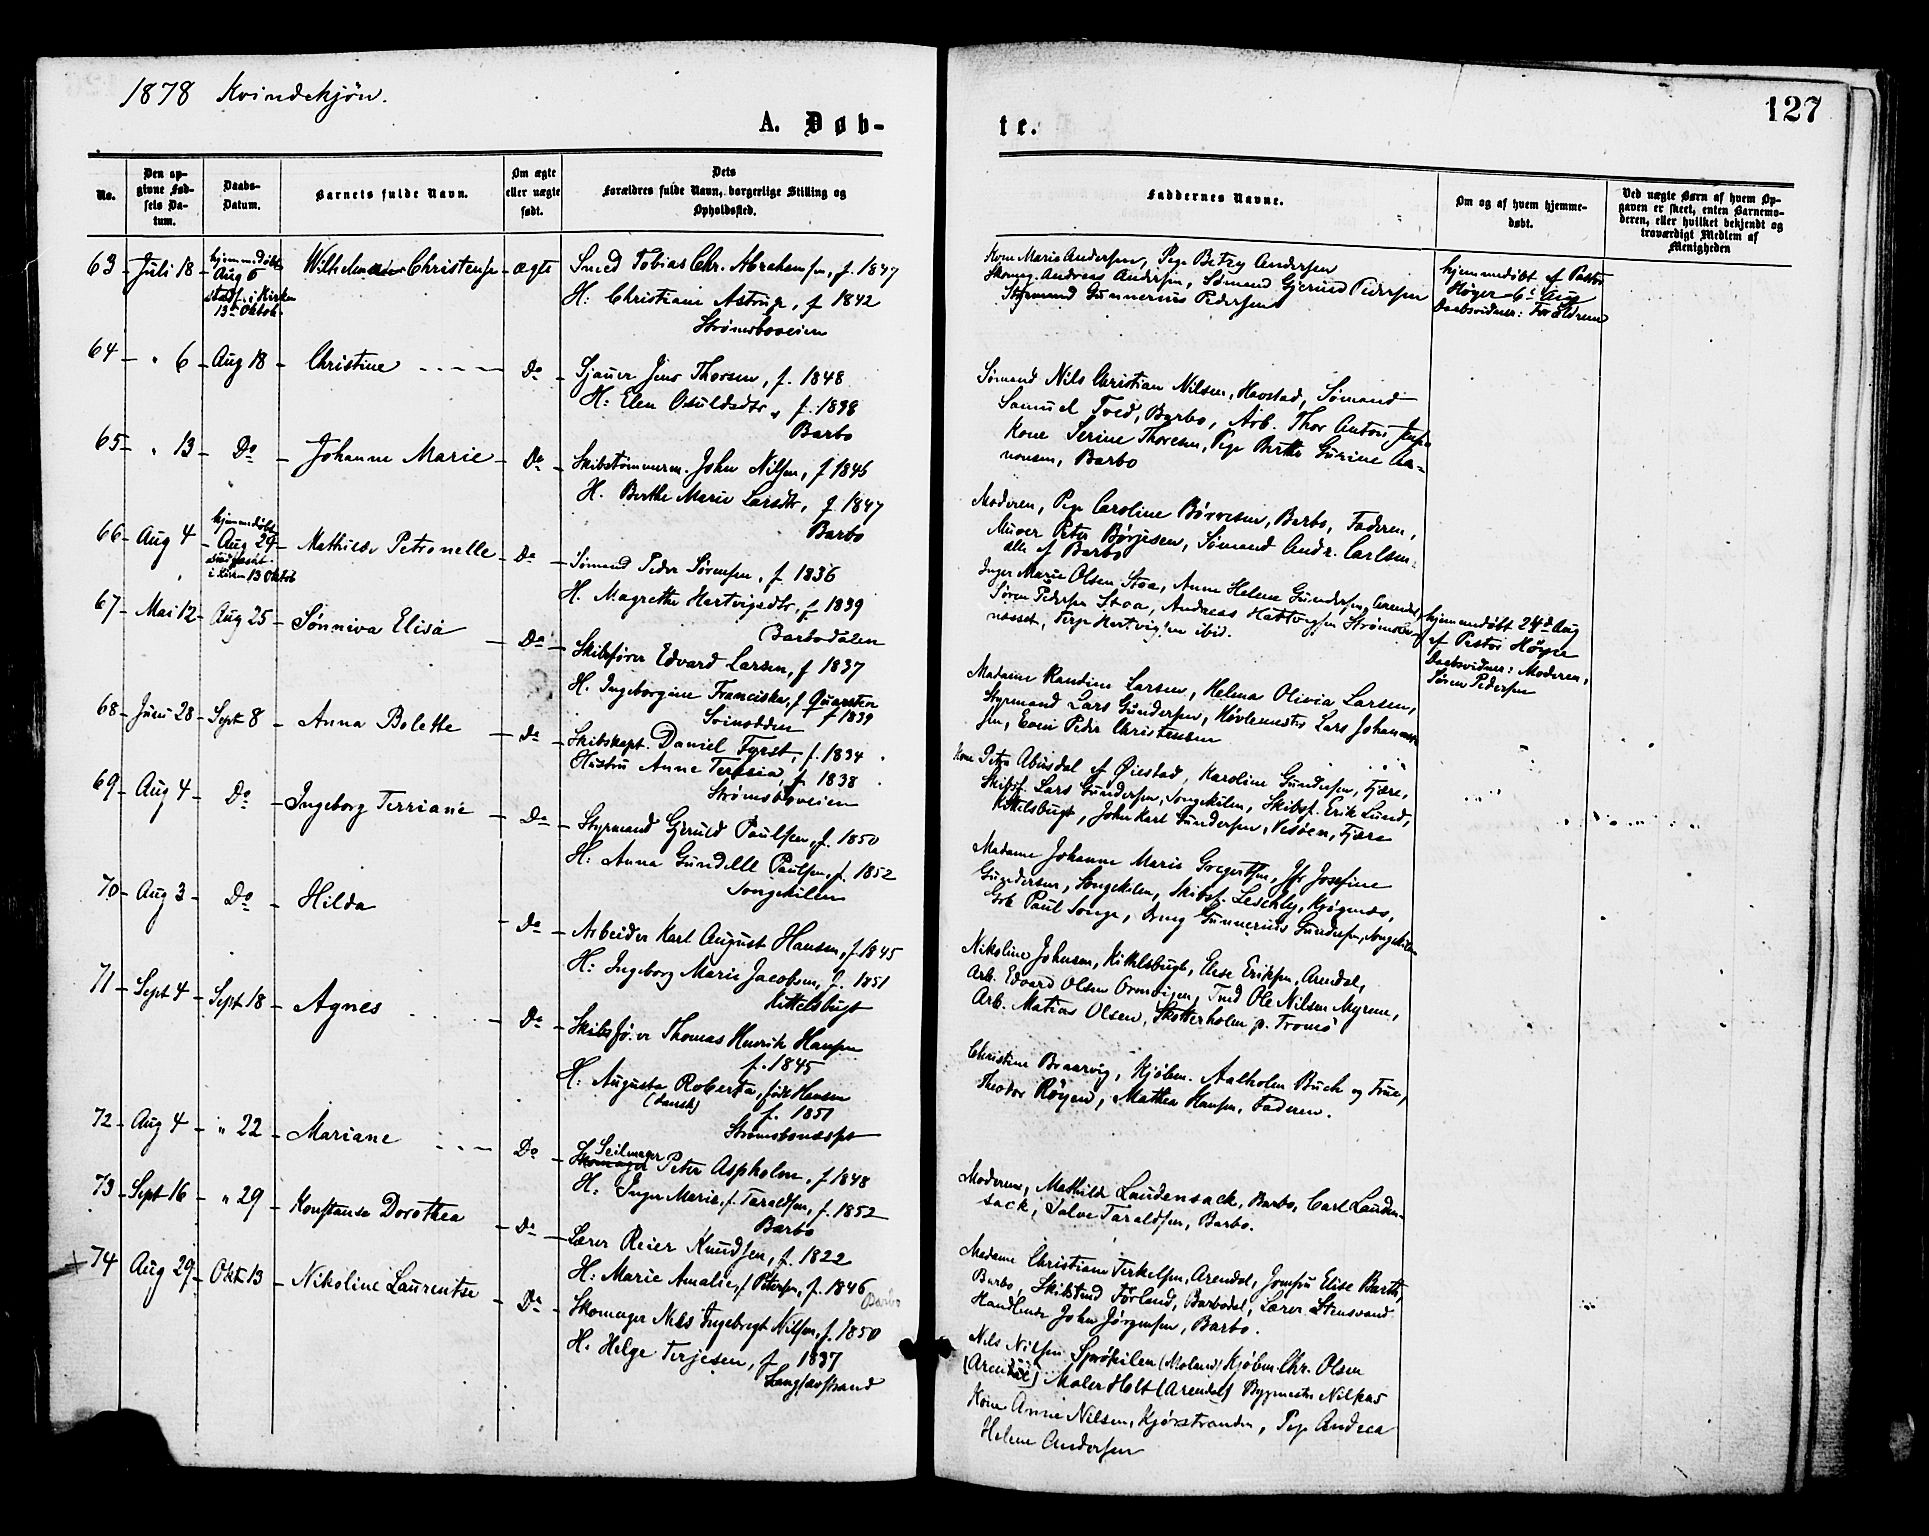 1878 Kvindekjøn.
127
A. Døb-
te.
No.
Den op-
givne Fød-
sels Da-
tum.
Daabs-
Datum.
Barnets fulde Navn.
Om ægte
eller uægte
født.
Dets
Forældres fulde Navn, borgerlige Stilling og
Opholdssted.
Faddernes Navne.
Om og af hvem hjemme-
døbt.
Ved uægte Børn af hvem Op-
gaven er skeet, enten Barnemo-
deren, eller hvilket bekjendt og
troværdigt Medlem af
Menigheden
63 Juli 18 hjemmedøbt
Aug 6
stadf. i Kirken
13de Oktob.
Christense ægte
Smed Tobias Chr. Abrahamsen, f. 1847
H: Christiane Astrup, f 1842
Strømsboveien
Kone Marie Andersen, Pige Betzy Andersen
Andreas Andersen, Sømand Gjerud Pedersen
Styrmand Gunnerius Pedersen
hjemmedøbt af Pastor
Høyer 6te Aug
Daabsvidner: Forældrene
64 " 6 Aug 18 Christine Do
Sjauer Jens Thorsen, f. 1848
H: Elen Osuldsdtr, f. 1838
Barbo
Sømand Nils Christian Nilsen, Havstad, Sømand
Samuel Tved, Barbo, Arb. Thor Anton
Kone Serine Thorsen, Pige Berthe Gurine Aa-
nonsen, Barbo
65 " 13 Do Johanne Marie Do
Skibstømmerm. John Nilsen, f 1845
H. Berthe Marie Larsdtr, f 1847
Barbo
Moderen, Pige Caroline Børresen, Barbo, Faderen,
Murer Peter Børjesen, Sømand Andr. Carlsen
alle af Barbo
66 Aug 4 hjemmedøbt
Aug 24
i Kirken 13 Oktob
Mathilde Petronelle Do
Sømand Peder Sørensen, f. 1836
H. Magrethe Hartvigsdtr, f 1839
Barbodalen
Inger Marie Olsen Stoa, Anne Helene Gundersen, Arendal,
Søren Pedersen Stoa, Andreas Hartvigsen Strømsbu
næsset, Terje Hartvigsen ibid.
hjemmedøbt 24de Aug
af Pastor Høyer
Daabsvidner: Moderen,
Søren Pedersen
67 Mai 12 Aug 25 Sønniva Elisa Do
Skibsfører Edvard Larsen, f 1837
H. Ingeborgine Franciska, f Quarsten
f 1839
Svinodden
Madame Randine Larsen, Helma Olivia Larsen,
Styrmand Lars Gundersen, Høvlemester Lars Johannes-
sen, Peder Christensen
68 Juni 28 Sept 8 Anna Bolette Do
Skibskapt. Daniel Fyrst, f. 1834
Hustru Anne Teresia, f 1838
Strømsboveien
Kone Petra Abusdal af Øiestad, Karoline Gundersen, Fjære,
Skibsf. Lars Gundersen, Songekilen, Skibsf. Erik Lund,
Kittelsbugt, John Karl Gundersen, Vesøen, Fjære
69 Aug 4 Do Ingeborg Terriane Do
Styrmand Gjeruld Paulsen, f. 1850
H: Anna Gundelle Paulsen, f. 1852
Songekilen
Madame Johanne Marie Gregertsen, Jfr Josefine
Gundersen, Songekilen, Skibsf. Leschly, Kjøgenæs,
Grb Paul Songe, Gunnerius Gundersen, Songekilen
70 Aug 3 Do Hilda Do
Arbeider Karl August Hansen, f. 1845
H: Ingeborg Marie Jacobsen, f. 1851
Kittelsbugt
Nikoline Johnsen, Kittelsbugt, Elise Eriksen, Arendal,
Arb. Edvard Olsen Ormøien, Tmd Ole Nilsen Myrene,
Arb. Matias Olsen, Skotterholm p. Tromø
71 Sept 4 Sept 18 Agnes Do
Skibsfører Thomas Henrik Hansen
f. 1845
H: Augusta Roberta, født Hansen
(dansk)
f. 1851
Strømsbonæsset
Christine Braarvig, Kjøbm. Aalholm Buch og Frue,
Theodor Røyen, Mathea Hansen, Faderen.
72 Aug 4 " 22 Mariane Do
Seilmager
Skomager Peter Aspholm, f 1848
H: Inger Marie, f. Taraldsen, f. 1852
Barbo
Moderen, Mathilde Laudensack, Barbo, Carl Lauden-
sack, Salve Taraldsen, Barbo.
73 Sept 16 " 29 Konstanse Dorothea Do
Lærer Reier Knudsen, f. 1822
H: Marie Amalie, f Petersen, f. 1846
Barbo
Madame Christiane Terkelsen, Arendal, Jomfru Elise Barth,
Barbo, Skibstmd Førland, Barbodal, Lærer Stensvand
Handlende John Jørgensen, Barbo.
74 Aug 29 Okt 13 Nikoline Laurentse Do
Skomager Nils Ingebregt Nilsen, f. 1850
H. Helge Terjesen, f 1837
Langsævstrand
Nils Nilsen Sprøkilen (Moland) Kjøbm. Chr. Olsen
(Arendal) Maler Holt (Arendal) Bygmester Nilsas
Kone Anne Nilsen, Kjørstranden, Pige Andrea
Helene Andersen